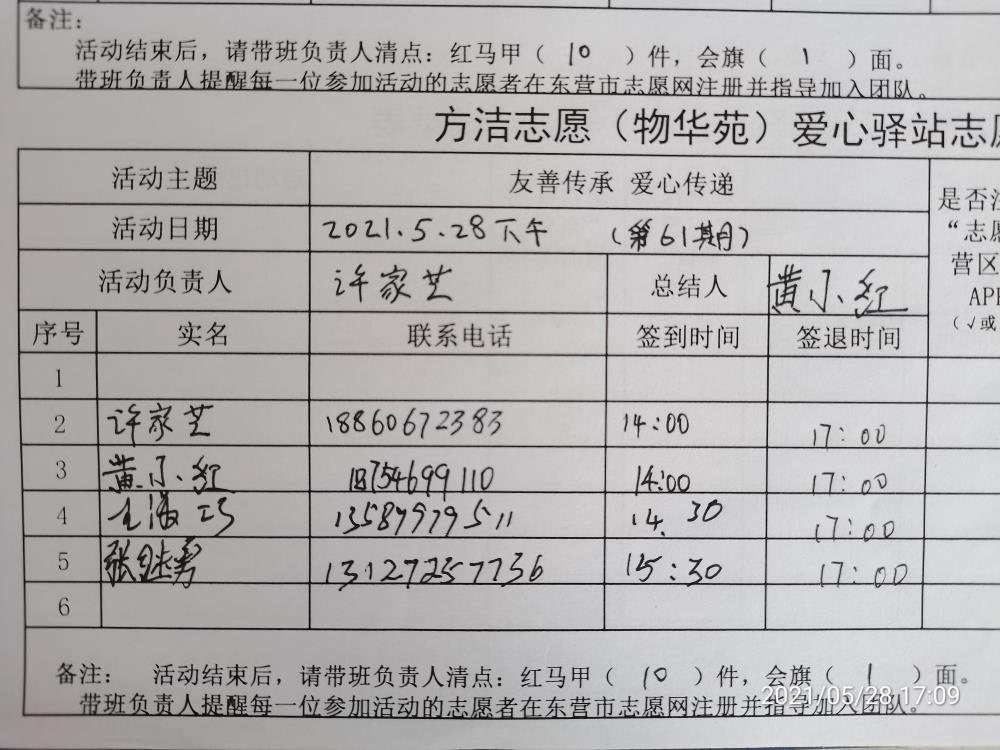 备注:
活动结束后，请带班负责人清点：红马甲（ 10 ）件，会旗（ 1 ）面。
带班负责人提醒每一位参加活动的志愿者在东营市志愿网注册并指导加入团队。
方洁志愿（物华苑）爱心驿站志愿
活动主题 友善传承 爱心传递
活动日期 2021.5.28下午 （第61期）
是否注
“志愿
营区
APP
（√或
活动负责人 许家芝 总结人 黄小红
序号 实名 联系电话 签到时间 签退时间
1
2 许家芝 18860672383 14:00 17:00
3 黄小红 18754699110 14:00 17:00
4 13589979511 14.30 17:00
5 张继勇 13127257736 15:30 17:00
6
备注： 活动结束后，请带班负责人清点：红马甲（ 10 ）件，会旗（ 1 ）面。
带班负责人提醒每一位参加活动的志愿者在东营市志愿网注册并指导加入团队。
2021/05/28 17:09